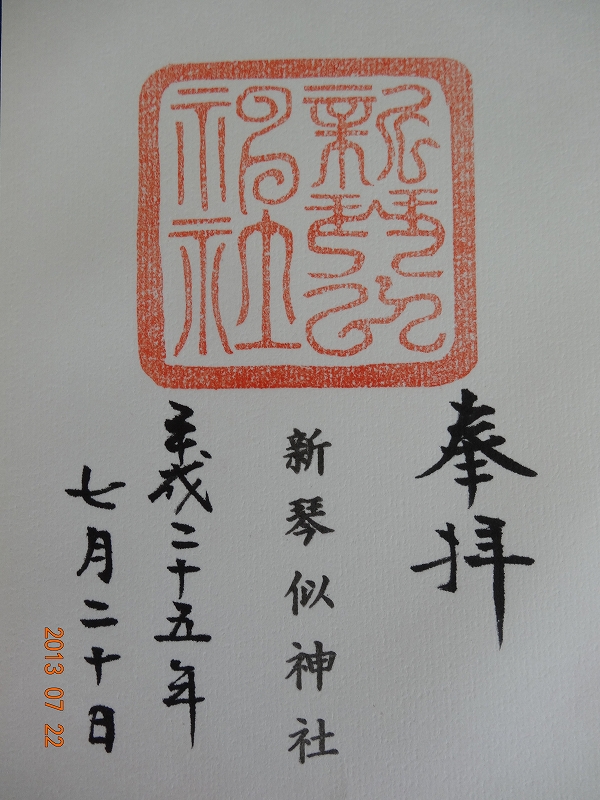 奉拝
新琴似神社
平成二十五年
七月二十日
2013 07 22